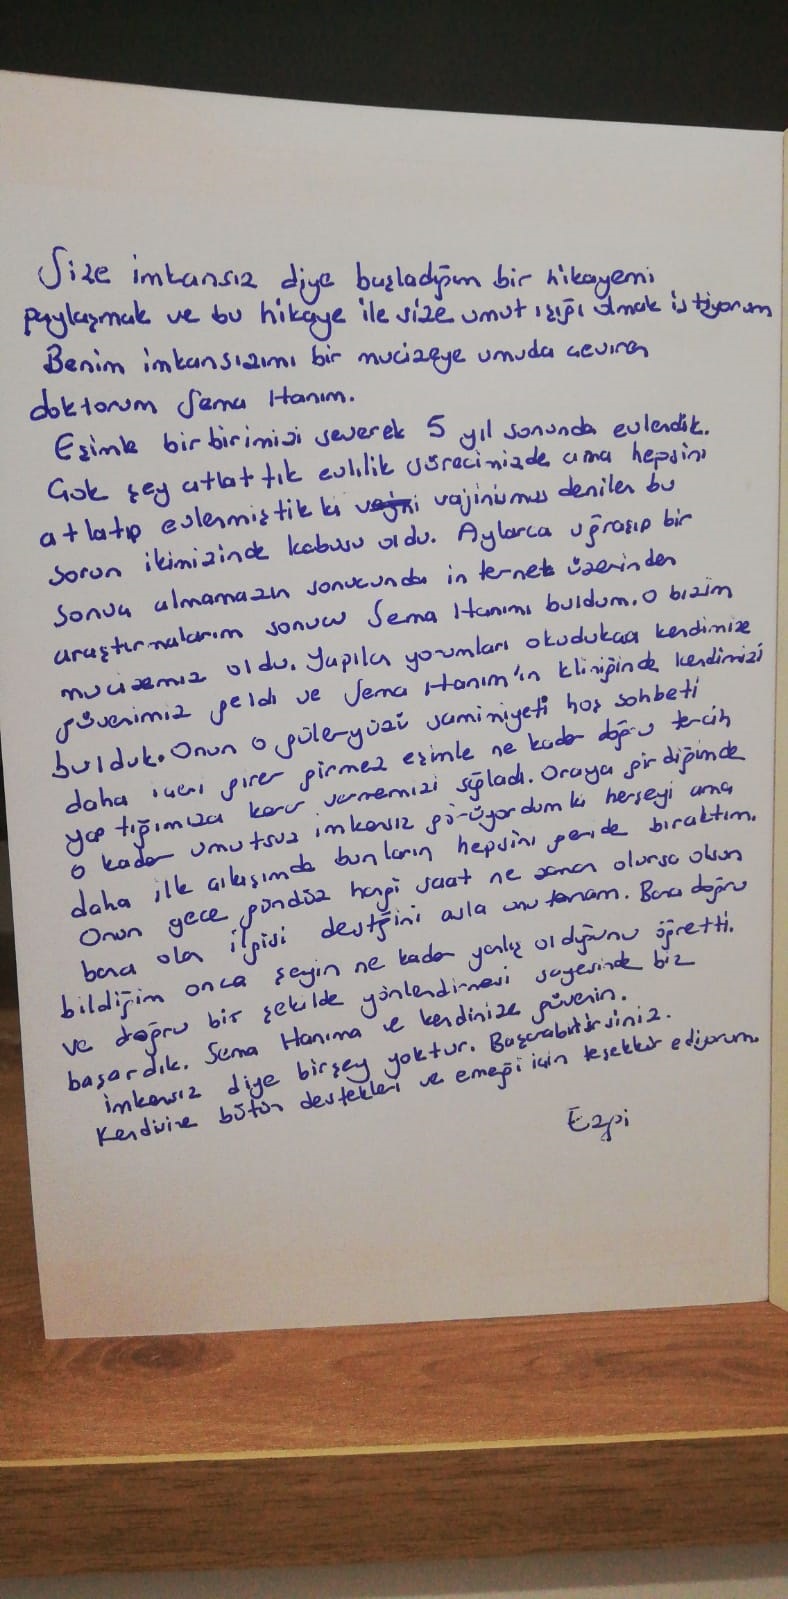 Size imkansız diye başladığım bir hikayemi
paylaşmak ve bu hikaye ile size umut ışığı olmak istiyorum
Benim imkansızımı bir mucizeye umuda çeviren
doktorum Sema Hanım.
Eşimle birbirimizi severek 5 yıl sonunda evlendik.
Çok şey atlattık evlilik sürecimizde ama hepsini
atlatıp evlenmiştik ki vajinusmus denilen bu
sorun ikimizinde kabusu oldu. Aylarca uğraşıp bir
sonuç almamazın sonucunda internete üzerinden
araştırmalarım sonucu Sema Hanımı buldum. O bizim
mucizemiz oldu. Yapılan yorumları okudukça kendimize
güvenimiz geldi ve Sema Hanım'ın kliniğinde kendimizi
bulduk. Onun o güleryüzü samimiyeti hoş sohbeti
daha içeri girer girmez eşimle ne kadar doğru tercih
yaptığımıza karar vermemizi sağladı. Oraya girdiğimde
o kadar umutsuz imkansız görüyordum ki herşeyi ama
daha ilk çıkışımda bunların hepsini geride bıraktım.
Onun gece gündüz hangi saat ne zaman olursa olsun
bana olan ilgisi desteğini asla unutamam. Bana doğru
bildiğim onca şeyin ne kadar yanlış olduğunu öğretti.
ve doğru bir şekilde yönlendirmesi sayesinde biz
başardık. Sema Hanıma ve kendinize güvenin.
imkansız diye birşey yoktur. Başarabilirsiniz.
Kendisine bütün destekleri ve emeği için teşekkür ediyorum.
Ezgi